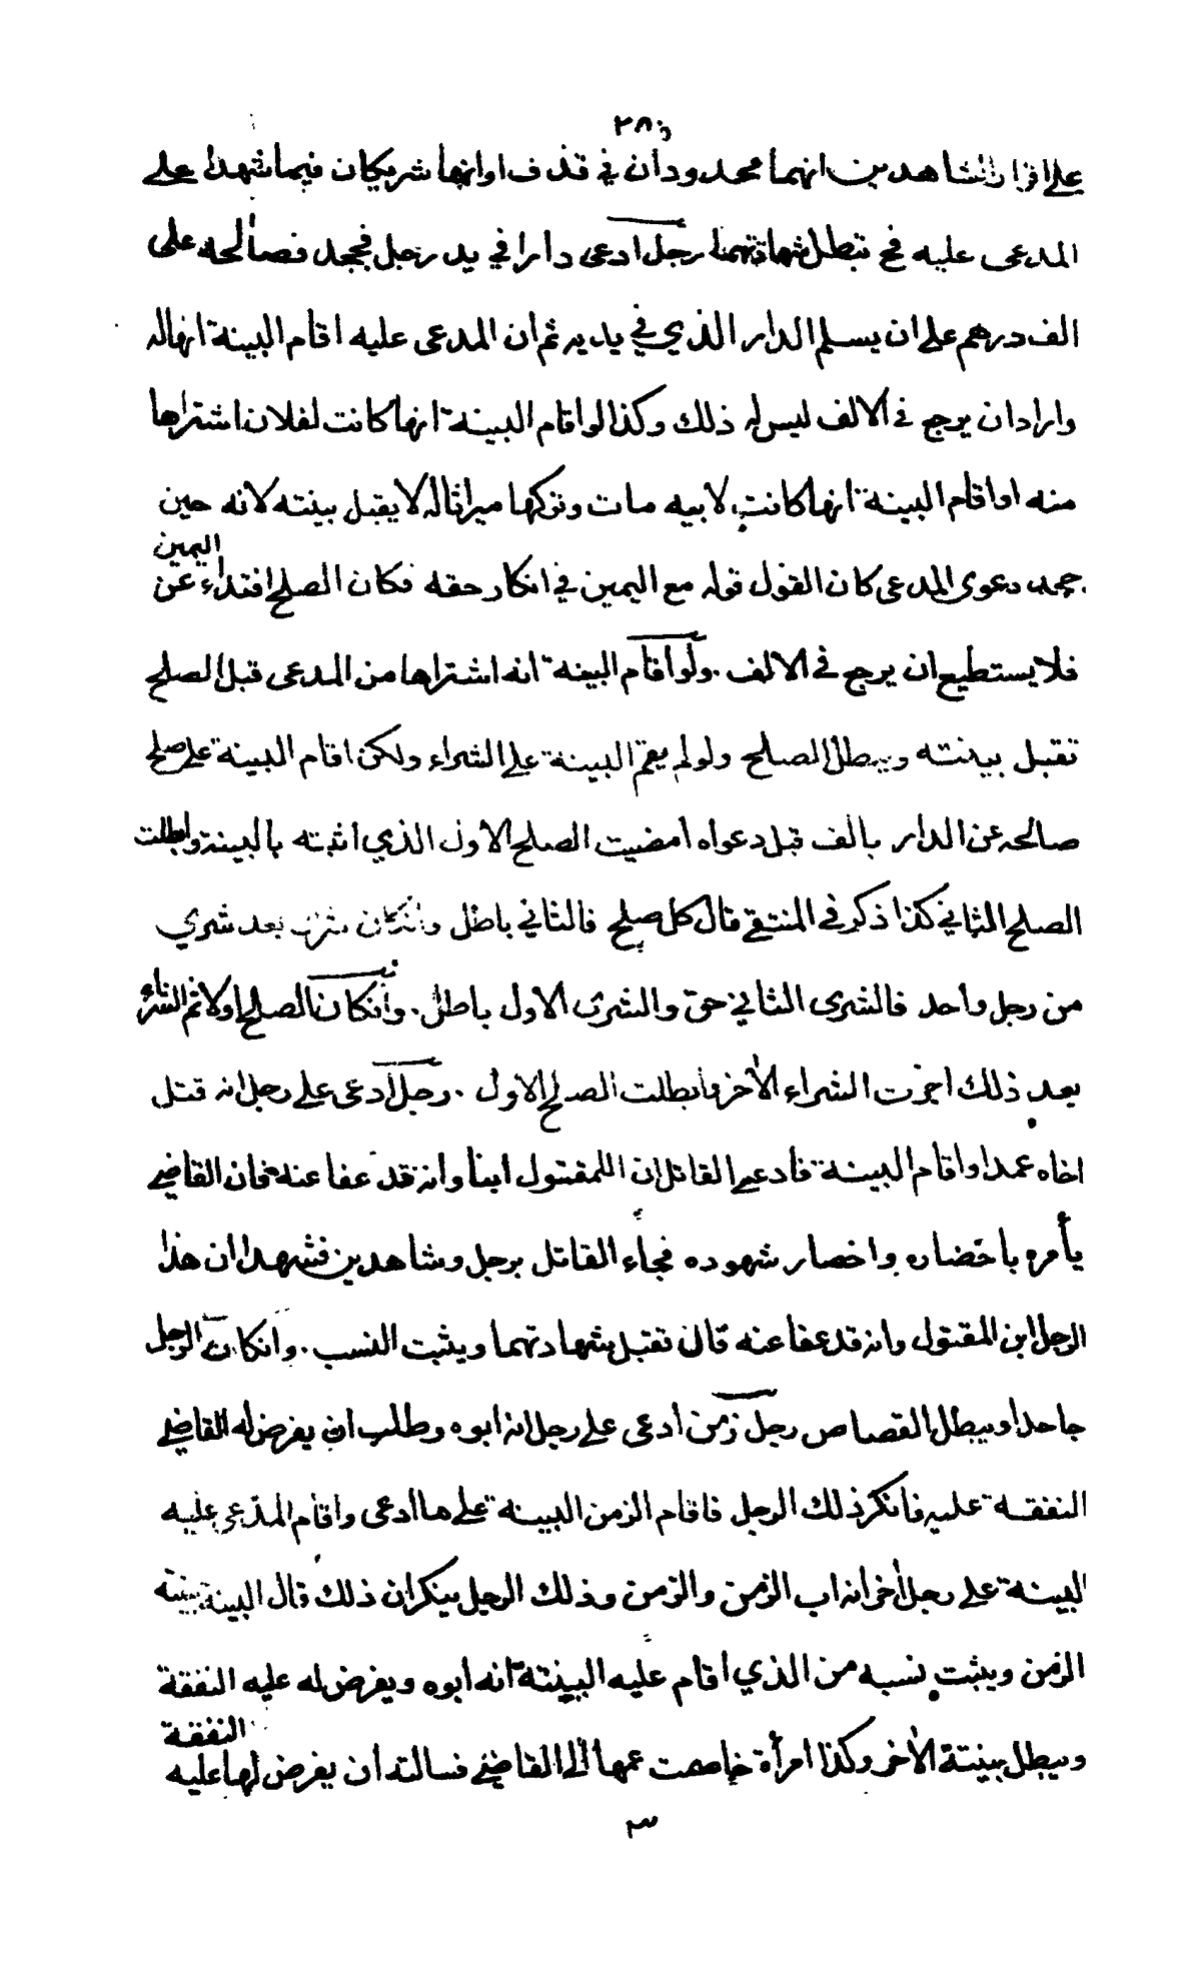 ٢٨٠
على اقرار الشاهدين انهما محدودان في قذف اوانهما شريكان فيما شهدا على
المدعى عليه فح تبطل شهادتهما رجل ادعى دارا في يد رجل فجحد فصالحه على
الف درهم على ان يسلم الدار الذي في يديه ثم ان المدعى عليه اقام البينة انها له
وارادان يرجع في الالف ليس له ذلك وكذا لو اقام البينة انها كانت لفلان اشتراها
منه او اقام البينة انها كانت لابيه مات وتركها ميراثا له لا يقبل بينته لانه حين
جحد دعوى المدعى كان القول قوله مع اليمين في انكار حقه فكان الصلح افتداء عن اليمين
فلا يستطيع ان يرجع في الالف ولو اقام البينة انه اشتراها من المدعى قبل الصلح
تقبل بينته ويبطل الصلح ولو لم يقم البينة على الشراء ولكن اقام البينة على صلح
صالحه عن الدار بالف قبل دعواه امضيت الصلح الاول الذي اثبته بالبينة وابطلت
الصلح الثاني كذا ذكر في المنتقى قال كل صلح فالثاني باطل وانكان شرى بعد شري
من رجل واحد فالشرى الثاني حق والشرى الاول باطل. وانكان الصلح اولا ثم الشراء
بعد ذلك اجزت الشراء الاخر وابطلت الصلح الاول. رجل ادعى على رجل انه قتل
اخاه عمدا واقام البينة فادعى القاتل ان للمقتول ابنا وانه قد عفا عنه فان القاضي
يأمره باحضاره واحضار شهوده فجاء القاتل برجل وشاهدين فشهدا ان هذا
الرجل ابن المقتول وانه قد عفا عنه قال تقبل شهادتهما ويثبت النسب. وانكان الرجل
جاحدا ويبطل القصاص رجل زمن ادعى على رجل انه ابوه وطلب ان يفرض له القاضي
النفقة عليه فانكر ذلك الرجل فاقام الزمن البينة على ما ادعى واقام المدعى عليه
البينة على رجل اخر انه اب الزمن والزمن وذلك الرجل ينكران ذلك قال البينة بينة
الزمن ويثبت نسبه من الذي اقام عليه البينة انه ابوه ويفرض له عليه النفقة
ويبطل بينة الاخر وكذا امرأة خاصمت عمها الى القاضي فسالته ان يفرض لها عليه النفقة